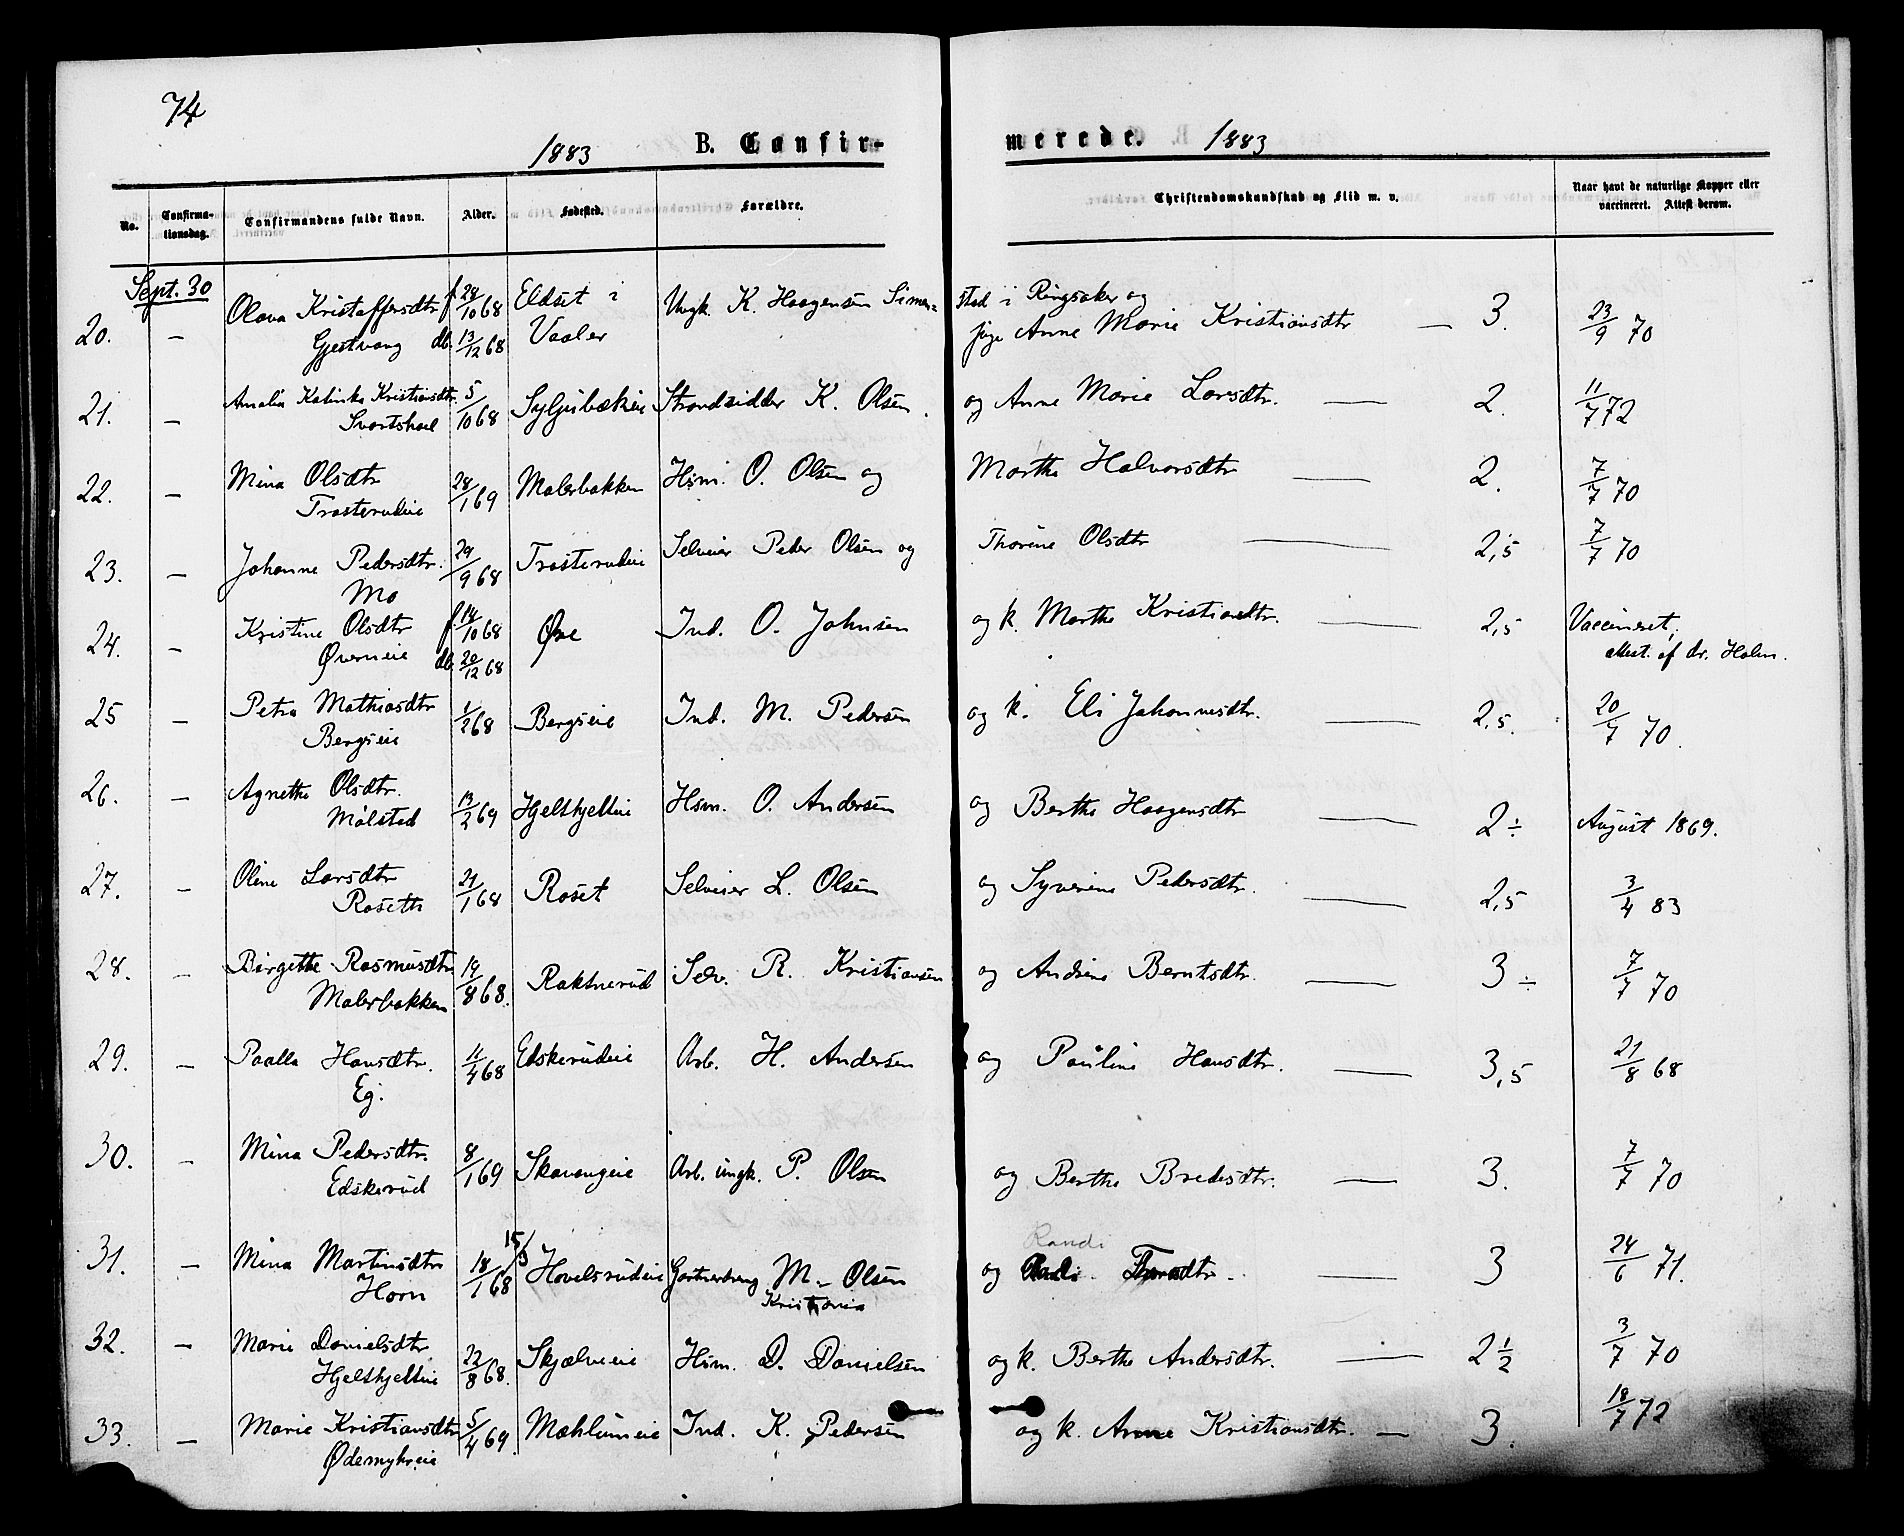 74
1883 B. Confirmerede. 1883
No. Confirmationsdag. Confirmandens fulde Navn. Alder. Fødested. Forældre. Christendomskundskab og Flid m. v. Naar havt de naturlige Kopper eller vaccineret. Attest derom.
Sept. 30
20. — Olava Kristoffersdtr f. 28/10 68 Eldset i Ungk. K. Haagensen Simen- stad i Ringsaker og
Gjestvang db. 13/12 68 Vaaler pige Anne Marie Kristiansdtr — 3. 23/9 70
21. — Amalia Kalinka Kristiansdtr. 5/10 68 Syljubækeie Strandsidder K. Olsen og Anne Marie Larsdtr. — 2. 11/7 72
Svartshoel
22. — Mina Olsdtr 28/1 69 Malerbakken Hsm. O. Olsen og Marthe Halvorsdtr — 2. 7/7 70
Trosterudeie
23. — Johanne Pedersdtr. 29/9 68 Trosterudeie Selveier Peder Olsen og Thorine Olsdtr — 2,5 7/7 70
Mo
24. — Kristine Olsdtr f. 14/10 68 Øve Ind. O. Johnsen og k. Marthe Kristiansdtr. — 2,5 Vaccineret,
Øverneie db. 20/12 68 attest. af dr. Holm.
25 — Petra Mathiasdtr 1/2 68 Bergseie Ind. M. Pedersen og k. Eli Johannesdtr. — 2,5. 20/7 70.
Bergseie
26. — Agnethe Olsdtr. 13/2 69 Hjelskjelleie Hsm. O. Andersen og Berthe Haagensdtr — 2 ÷ August 1869.
Mølsted
27. — Oline Larsdtr 21/1 68 Roset Selveier L. Olsen og Syverine Pedersdtr. — 2,5 3/4 83
Roseth
28. — Birgette Rasmusdtr 19/8 68. Raknerud Selv. R. Kristiansen og Andrine Berntsdtr. — 3 ÷ 7/7 70
Malerbakken
29. — Paalla Hansdtr. 11/4 68 Edskerudeie Arb. H. Andersen og Pauline Hansdtr. — 3,5 21/8 68
Eg.
30. — Mina Pedersdtr. 8/1 69 Skavangeie Arb. ungk. P. Olsen og Berthe Bredesdtr. — 3. 7/7 70
Edskerud
15/9 Randi
31. — Mina Martinsdtr 18/1 68 Hovelsrudeie Gartnerdreng M. Olsen og — 3 24/6 71.
Horn Kristiania
32. — Marie Danielsdtr 22/8 68. Skjælveeie Hsm. D. Danielsen og k. Berthe Andersdtr. — 2 1/2 3/7 70
Hjelskjelleie
33. — Marie Kristiansdtr 5/4 69. Mæhlumeie Ind. K. Pedersen og k. Anne Kristiansdtr. — 3. 18/7 72
Ødemykreie